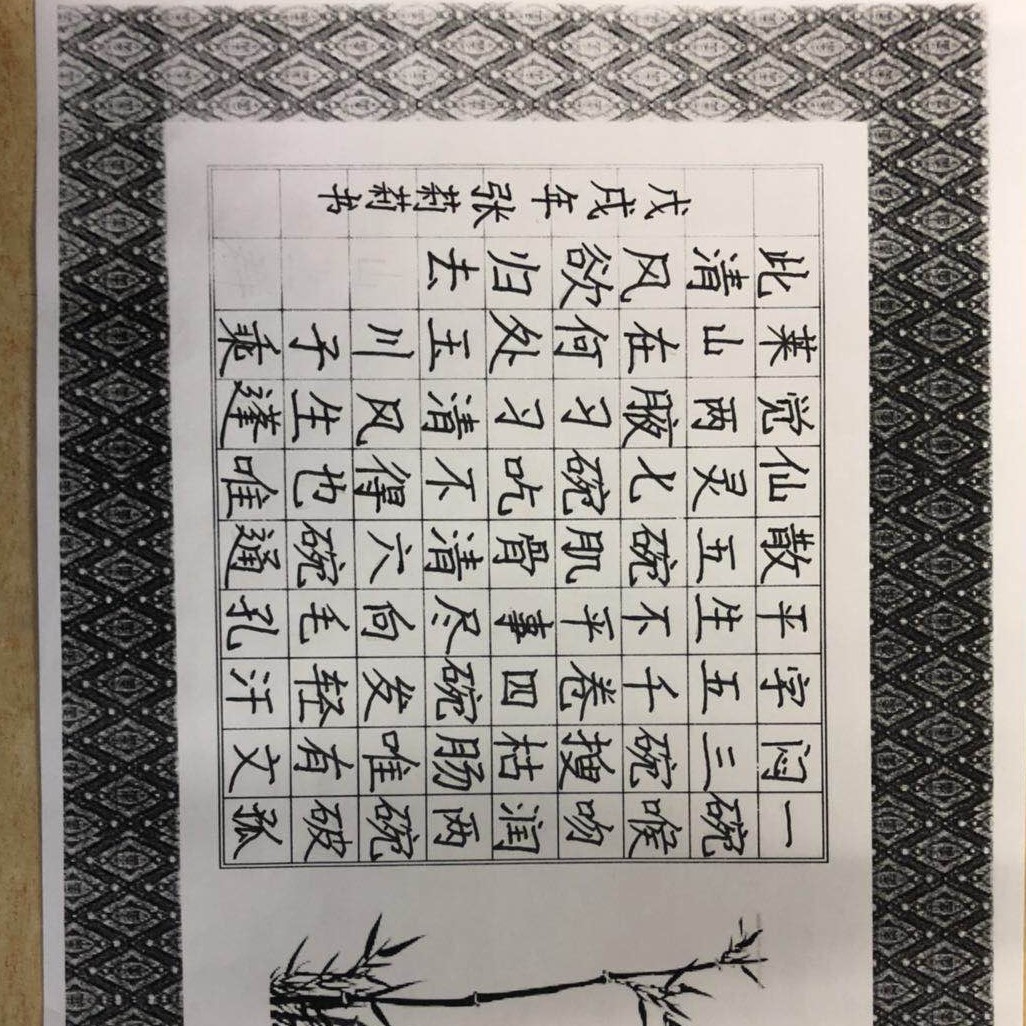 一碗喉吻润两碗破孤
闷三碗搜枯肠唯有文
字五千卷四碗发轻汗
平生不平事尽向毛孔
散五碗肌骨清六碗通
仙灵七碗吃不得也唯
觉两腋习习清风生蓬
莱山在何处玉川子乘
此清风欲归去
戊戌年张莉莉书